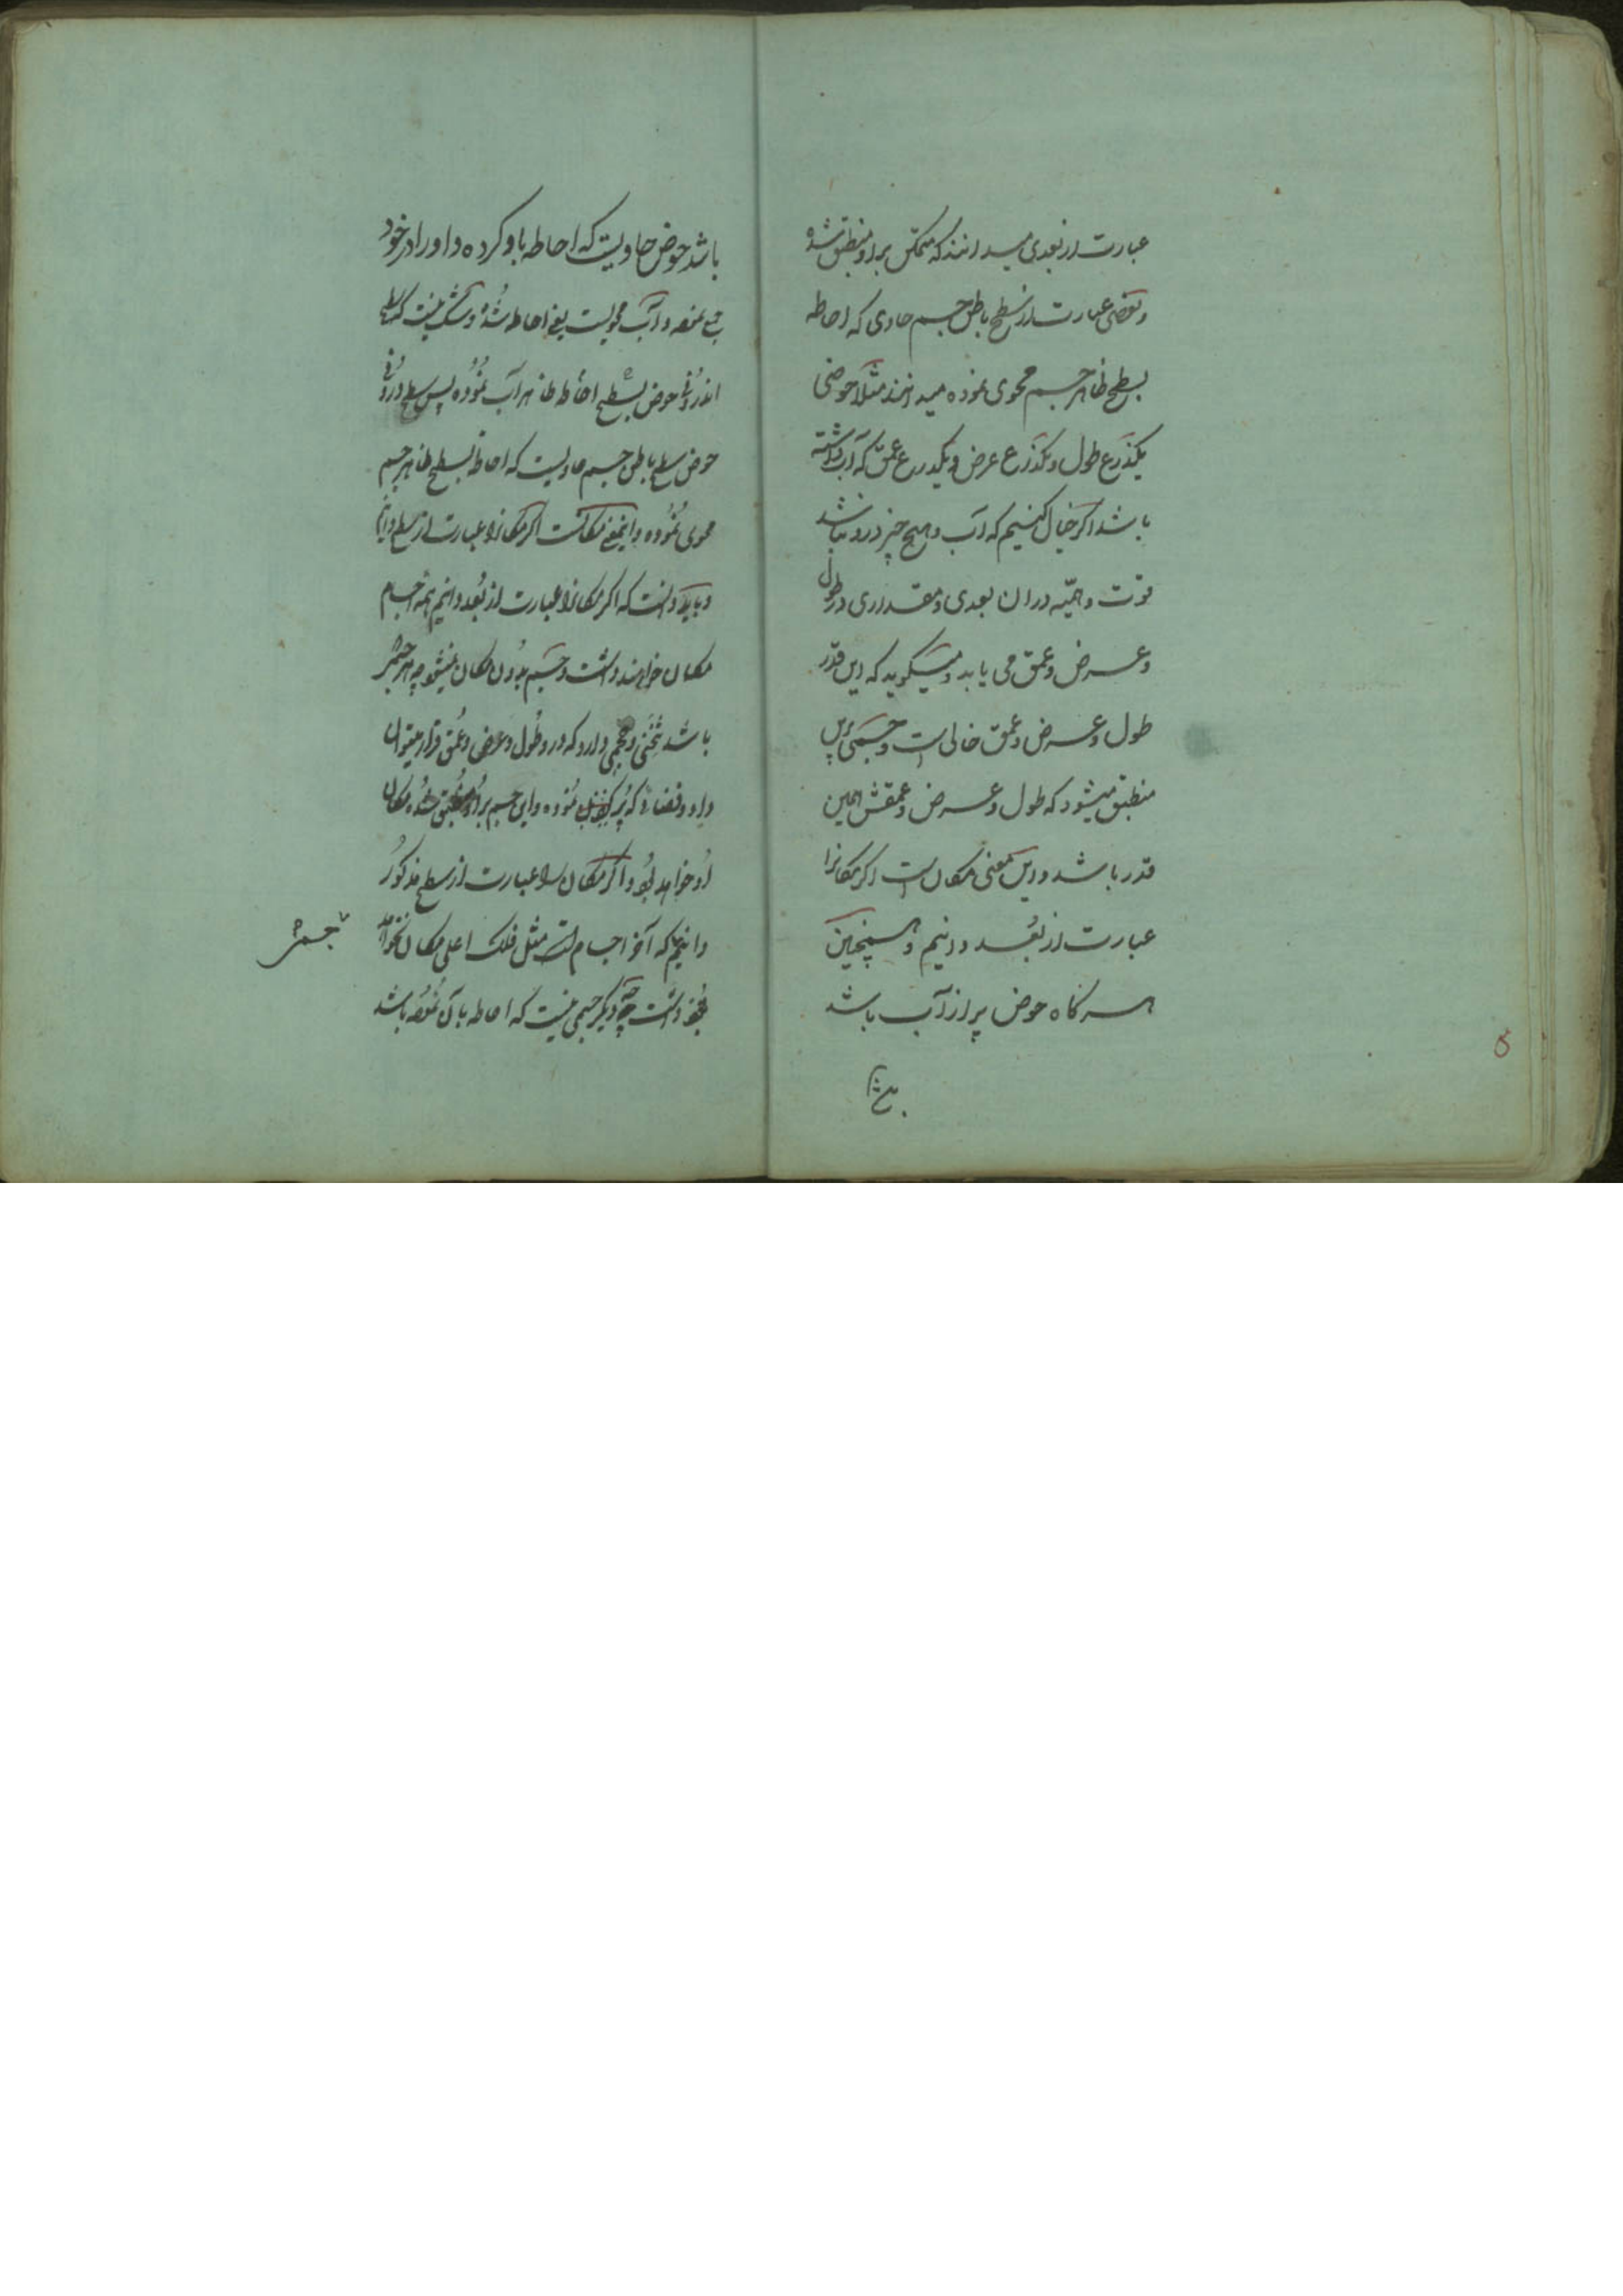 عبارت از بعدی میدانند که متمکن براو منطبق شده
و بعضی عبارت از سطح باطن جسم حاوی که احاطه
بسطح ظاهر جسم محوی نموده میدانند مثلا حوضی
یکذرع طول و یکذرع عرض و یکذرع عمق که آب داشته
باشد اگر خیال کنیم که آب و هیچ چیز درو نباشد
قوت واهمیّه دران بعدی و مقداری در طول
و عرض و عمق می یابد و میگوید که این قدر
طول و عرض و عمق خالی است و جسمی باین
منطبق میشود که طول و عرض و عمقش همین
قدر باشد و این معنی مکان است اگر مکانرا
عبارت از بُعد دانیم و همچنین
هر گاه حوض پر از آب باشد
باشد حوض حاویست که احاطه باو کرده و او را در خود
جمع نموده و آب محویست یعنی احاطه شُده و شک نیست که سطح
اندرُونی حوض بسطح ظاهر آب احاطه نمُوده پس سطح درُونی
حوض سطح باطن جسم حاویست که احاطه بسطح ظاهر جسم
محوی نمُوده و اینمعنی مکانست اگر مکانرا عبارت از سطح دانیم
و باید دانست که اگر مکانرا عبارت از بُعد دانیم همه اجسام
مکان خواهند داشت و جسم بدُون مکان نمیشود چه هر جسم
باشد ثخنی و حجمی دارد که درو طُول و عرض و عُمق قرار میتوان
داد و فضائی که پُر نمُوده و این جسم براو منطبق شده مکان
اُو خواهد بُود و اگر مکان را عبارت از سطح مذکُور
دانیم که آخر اجسام است مثل فلک اعلی مکان نخواهد
داشت چه دیگر جسمی نیست که احاطه بآن نمُوده باشد
جسمش